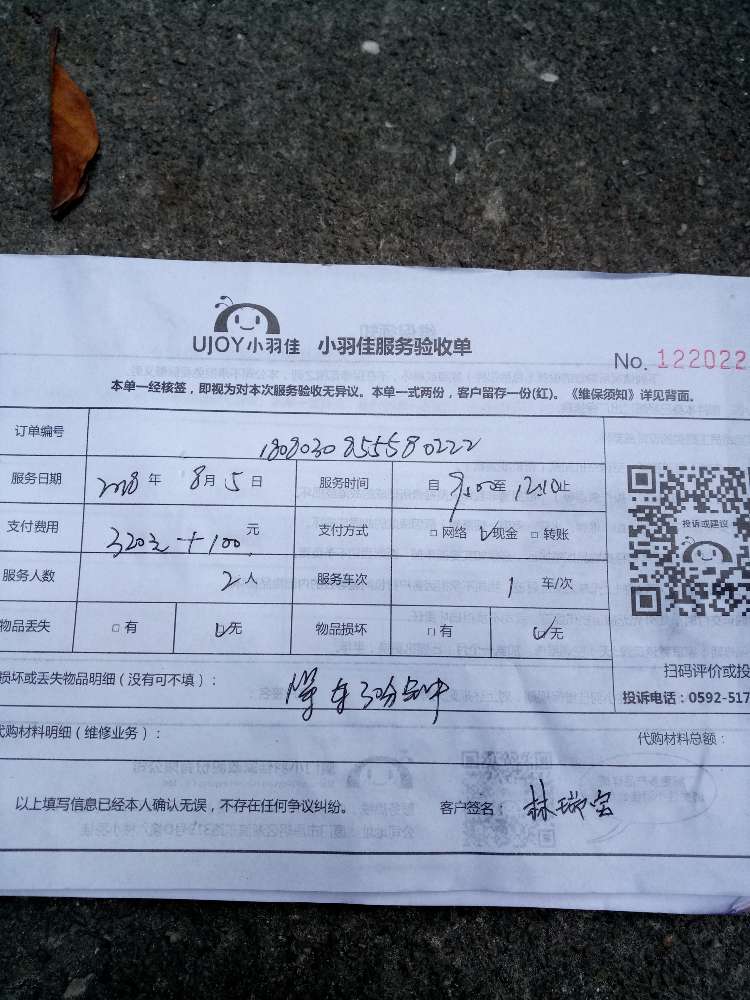 UJOY小羽佳 小羽佳服务验收单
No. 122022
本单一经核签，即视为对本次服务验收无异议。本单一式两份，客户留存一份(红)。《维保须知》详见背面。
订单编号 180803085558 0222
服务日期 2018年 8月 5日 服务时间 自 9:00至 12:10止
支付费用 320元+100元 支付方式 □网络 ☑现金 □转账
投诉或建议
服务人数 2人 服务车次 1 车/次
物品丢失 □有 ☑无 物品损坏 □有 ☑无
损坏或丢失物品明细（没有可不填）： 等车30分钟
扫码评价或投
投诉电话：0592-517
代购材料明细（维修业务）： 代购材料总额：
以上填写信息已经本人确认无误，不存在任何争议纠纷。 客户签名： 林瑞宝